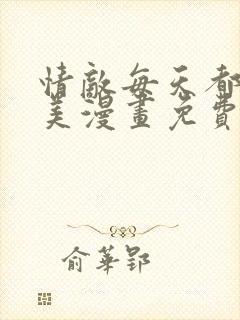 情敵每天都
美漫畫免費
俞華郢